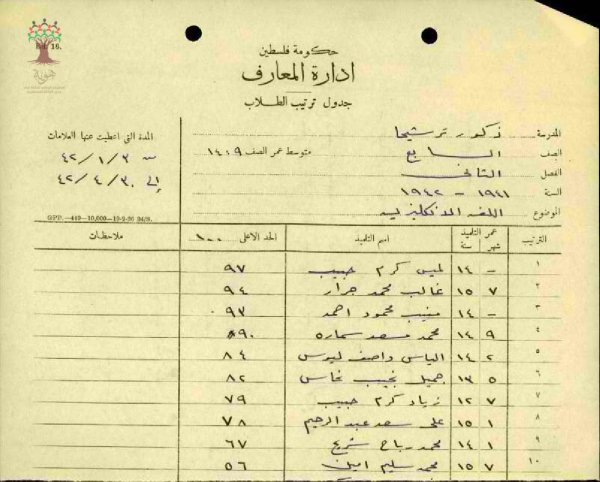 Ed. 19.
هوية
حكومة فلسطين
ادارة المعارف
جدول ترتيب الطلاب
المدرسة ذكور ترشيحا
الصف السابع متوسط عمر الصف ١٤،٩
الفصل الثاني
السنة ١٩٤١ – ١٩٤٢
الموضوع اللغة الانكليزيه
المدة التي اعطيت عنها العلامات
من ٤٢/١/٣
إلى ٤٢/٤/٣٠
GPD.—440—10,000—19-2-36
الترتيب عمر التلميذ شهر سنة اسم التلميذ الحد الاعلى ١٠٠ ملاحظات
١ – ١٤ كرم حبيب ٩٧
٢ ٧ ١٥ غالب محمد جرار ٩٤
٣ – ١٤ منيب محمود احمد ٩٣
٤ ٩ ١٤ محمد مسعد سماره ٩٠
٥ ٢ ١٤ الياس واصف ٨٤
٦ ٥ ١٣ جميل نجيب نحاس ٨٢
٧ ٧ ١٢ زياد كرم حبيب ٧٩
٨ ١ ١٥ علي سعد عبد الرحيم ٧٨
٩ ١ ١٤ محمد رباح شريح ٦٧
١٠ ٧ ١٥ محمد سليم امين ٥٦